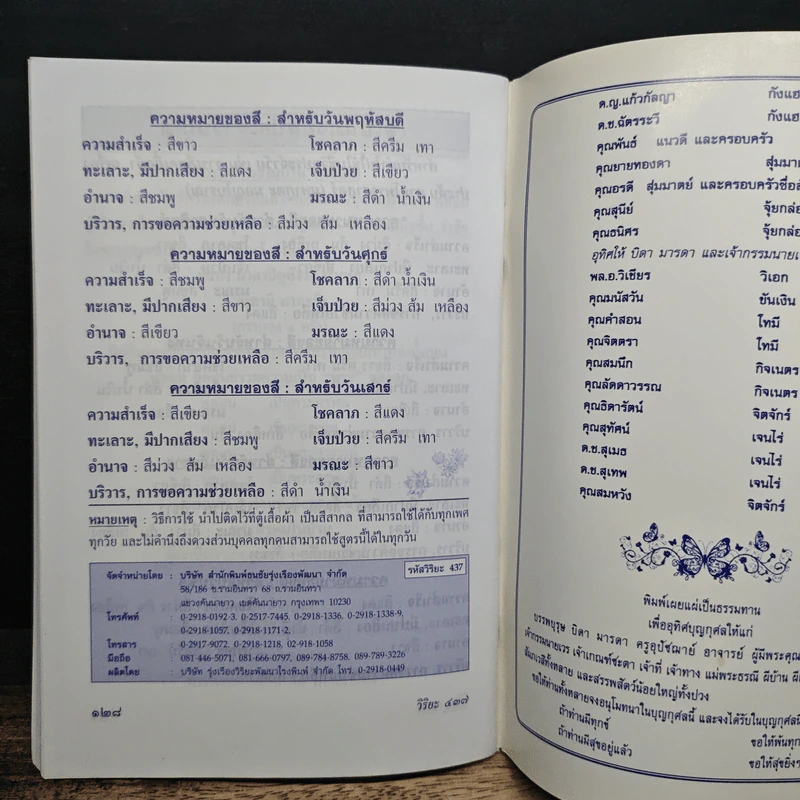 ความหมายของสี : สำหรับวันพฤหัสบดี
ความสำเร็จ : สีขาว โชคลาภ : สีครีม เทา
ทะเลาะ, มีปากเสียง : สีแดง เจ็บป่วย : สีเขียว
อำนาจ : สีชมพู มรณะ : สีดำ น้ำเงิน
บริวาร, การขอความช่วยเหลือ : สีม่วง ส้ม เหลือง
ความหมายของสี : สำหรับวันศุกร์
ความสำเร็จ : สีชมพู โชคลาภ : สีดำ น้ำเงิน
ทะเลาะ, มีปากเสียง : สีขาว เจ็บป่วย : สีม่วง ส้ม เหลือง
อำนาจ : สีเขียว มรณะ : สีแดง
บริวาร, การขอความช่วยเหลือ : สีครีม เทา
ความหมายของสี : สำหรับวันเสาร์
ความสำเร็จ : สีเขียว โชคลาภ : สีแดง
ทะเลาะ, มีปากเสียง : สีชมพู เจ็บป่วย : สีครีม เทา
อำนาจ : สีม่วง ส้ม เหลือง มรณะ : สีขาว
บริวาร, การขอความช่วยเหลือ : สีดำ น้ำเงิน
หมายเหตุ : วิธีการใช้ นำไปติดไว้ที่ตู้เสื้อผ้า เป็นสีสากล ที่สามารถใช้ได้กับทุกเพศ
ทุกวัย และไม่คำนึงถึงดวงส่วนบุคคลทุกคนสามารถใช้สูตรนี้ได้ในทุกวัน
จัดจำหน่ายโดย : บริษัท สำนักพิมพ์ธนชัยรุ่งเรืองพัฒนา จำกัด รหัสวิริยะ 437
58/186 ซ.รามอินทรา 68 ถ.รามอินทรา
แขวงคันนายาว เขตคันนายาว กรุงเทพฯ 10230
โทรศัพท์ : 0-2918-0192-3, 0-2517-7445, 0-2918-1336, 0-2918-1338-9,
0-2918-1057, 0-2918-1171-2,
โทรสาร : 0-2917-9072, 0-2918-1218, 02-918-1058
มือถือ : 081-446-5071, 081-666-0797, 089-784-8758, 089-789-3226
ผลิตโดย : บริษัท รุ่งเรืองวิริยะพัฒนาโรงพิมพ์ จำกัด โทร. 0-2918-0449
๑๒๘ วิริยะ ๔๓๗
ด.ญ.แก้วกัลญา
ด.ช.ฉัตรระวี
คุณพันธ์ แนวดี และครอบครัว
คุณยายทองดา
คุณอรดี สุ่มมาตย์
คุณสุนีย์
คุณธนิศร
อุทิศให้ บิดา มารดา
พล.อ.วิเชียร วิเอก
คุณมนัสวัน ขันเงิน
คุณคำสอน ไทมี
คุณจิตตรา ไทมี
คุณสมนึก กิจเนตร
คุณลัดดาวรรณ กิจเนตร
คุณธิดารัตน์ จิตจักร์
คุณสุทัศน์ เจนไร่
ด.ช.สุเมธ เจนไร่
ด.ช.สุเทพ เจนไร่
คุณสมหวัง จิตจักร์
พิมพ์เผยแผ่เป็นธรรมทาน
เพื่ออุทิศบุญกุศลให้แก่
บรรพบุรุษ บิดา มารดา ครูอุปัชฌาย์ อาจารย์
เจ้ากรรมนายเวร เจ้าเกณฑ์ชะตา เจ้าที่ เจ้าทาง แม่พระธรณี
สัมภเวสีทั้งหลาย และสรรพสัตว์น้อยใหญ่ทั้งปวง
ขอให้ท่านทั้งหลายจงอนุโมทนาในบุญกุศลนี้
ถ้าท่านมีทุกข์
ถ้าท่านมีสุขอยู่แล้ว